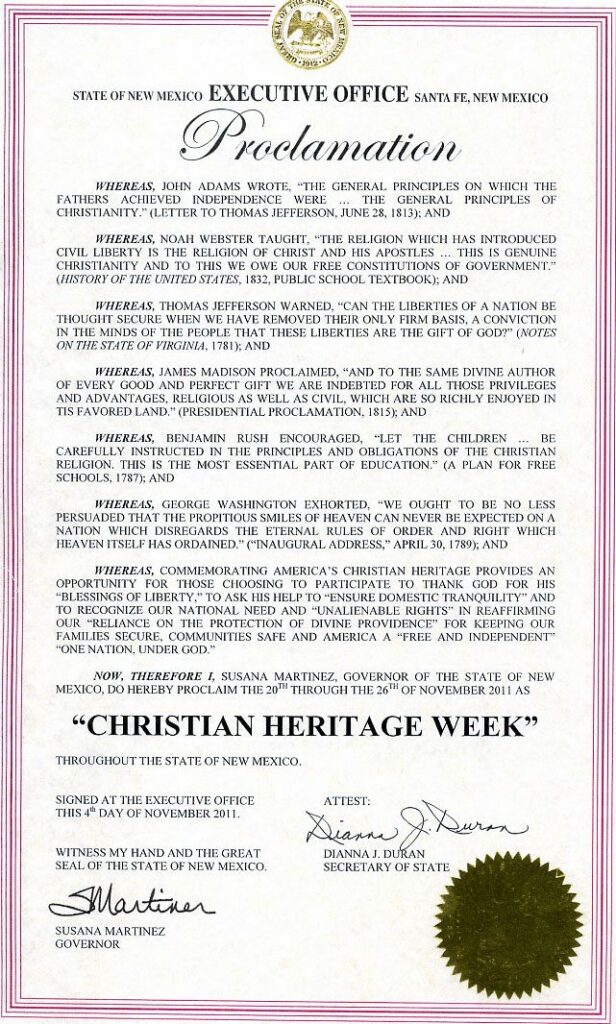 GREAT SEAL OF THE STATE OF NEW MEXICO
1912
STATE OF NEW MEXICO EXECUTIVE OFFICE SANTA FE, NEW MEXICO
Proclamation
WHEREAS, JOHN ADAMS WROTE, “THE GENERAL PRINCIPLES ON WHICH THE
FATHERS ACHIEVED INDEPENDENCE WERE … THE GENERAL PRINCIPLES OF
CHRISTIANITY.” (LETTER TO THOMAS JEFFERSON, JUNE 28, 1813); AND
WHEREAS, NOAH WEBSTER TAUGHT, “THE RELIGION WHICH HAS INTRODUCED
CIVIL LIBERTY IS THE RELIGION OF CHRIST AND HIS APOSTLES … THIS IS GENUINE
CHRISTIANITY AND TO THIS WE OWE OUR FREE CONSTITUTIONS OF GOVERNMENT.”
(HISTORY OF THE UNITED STATES, 1832, PUBLIC SCHOOL TEXTBOOK); AND
WHEREAS, THOMAS JEFFERSON WARNED, “CAN THE LIBERTIES OF A NATION BE
THOUGHT SECURE WHEN WE HAVE REMOVED THEIR ONLY FIRM BASIS, A CONVICTION
IN THE MINDS OF THE PEOPLE THAT THESE LIBERTIES ARE THE GIFT OF GOD?” (NOTES
ON THE STATE OF VIRGINIA, 1781); AND
WHEREAS, JAMES MADISON PROCLAIMED, “AND TO THE SAME DIVINE AUTHOR
OF EVERY GOOD AND PERFECT GIFT WE ARE INDEBTED FOR ALL THOSE PRIVILEGES
AND ADVANTAGES, RELIGIOUS AS WELL AS CIVIL, WHICH ARE SO RICHLY ENJOYED IN
TIS FAVORED LAND.” (PRESIDENTIAL PROCLAMATION, 1815); AND
WHEREAS, BENJAMIN RUSH ENCOURAGED, “LET THE CHILDREN … BE
CAREFULLY INSTRUCTED IN THE PRINCIPLES AND OBLIGATIONS OF THE CHRISTIAN
RELIGION. THIS IS THE MOST ESSENTIAL PART OF EDUCATION.” (A PLAN FOR FREE
SCHOOLS, 1787); AND
WHEREAS, GEORGE WASHINGTON EXHORTED, “WE OUGHT TO BE NO LESS
PERSUADED THAT THE PROPITIOUS SMILES OF HEAVEN CAN NEVER BE EXPECTED ON A
NATION WHICH DISREGARDS THE ETERNAL RULES OF ORDER AND RIGHT WHICH
HEAVEN ITSELF HAS ORDAINED.” (“INAUGURAL ADDRESS,” APRIL 30, 1789); AND
WHEREAS, COMMEMORATING AMERICA’S CHRISTIAN HERITAGE PROVIDES AN
OPPORTUNITY FOR THOSE CHOOSING TO PARTICIPATE TO THANK GOD FOR HIS
“BLESSINGS OF LIBERTY,” TO ASK HIS HELP TO “ENSURE DOMESTIC TRANQUILITY” AND
TO RECOGNIZE OUR NATIONAL NEED AND “UNALIENABLE RIGHTS” IN REAFFIRMING
OUR “RELIANCE ON THE PROTECTION OF DIVINE PROVIDENCE” FOR KEEPING OUR
FAMILIES SECURE, COMMUNITIES SAFE AND AMERICA A “FREE AND INDEPENDENT”
“ONE NATION, UNDER GOD.”
NOW, THEREFORE I, SUSANA MARTINEZ, GOVERNOR OF THE STATE OF NEW
MEXICO, DO HEREBY PROCLAIM THE 20TH THROUGH THE 26TH OF NOVEMBER 2011 AS
“CHRISTIAN HERITAGE WEEK”
THROUGHOUT THE STATE OF NEW MEXICO.
SIGNED AT THE EXECUTIVE OFFICE
THIS 4th DAY OF NOVEMBER 2011.
WITNESS MY HAND AND THE GREAT
SEAL OF THE STATE OF NEW MEXICO.
SMartinez
SUSANA MARTINEZ
GOVERNOR
ATTEST:
Dianna J. Duran
DIANNA J. DURAN
SECRETARY OF STATE